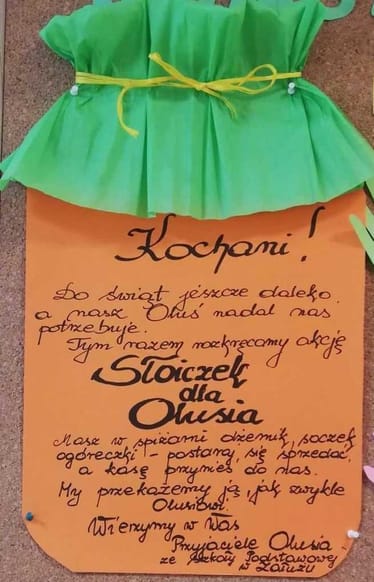 Kochani!
Do świąt jeszcze daleko,
a nasz Oluś nadal nas
potrzebuje.
Tym razem rozkręcamy akcję
Słoiczek
dla
Olusia
Masz w spiżarni dżemik, soczek,
ogóreczki - postaraj się sprzedać,
a kasę przynieś do nas.
My przekażemy ją, jak zwykle
Olusiowi.
Wierzymy w Was
Przyjaciele Olusia
ze Szkoły Podstawowej
w Załużu